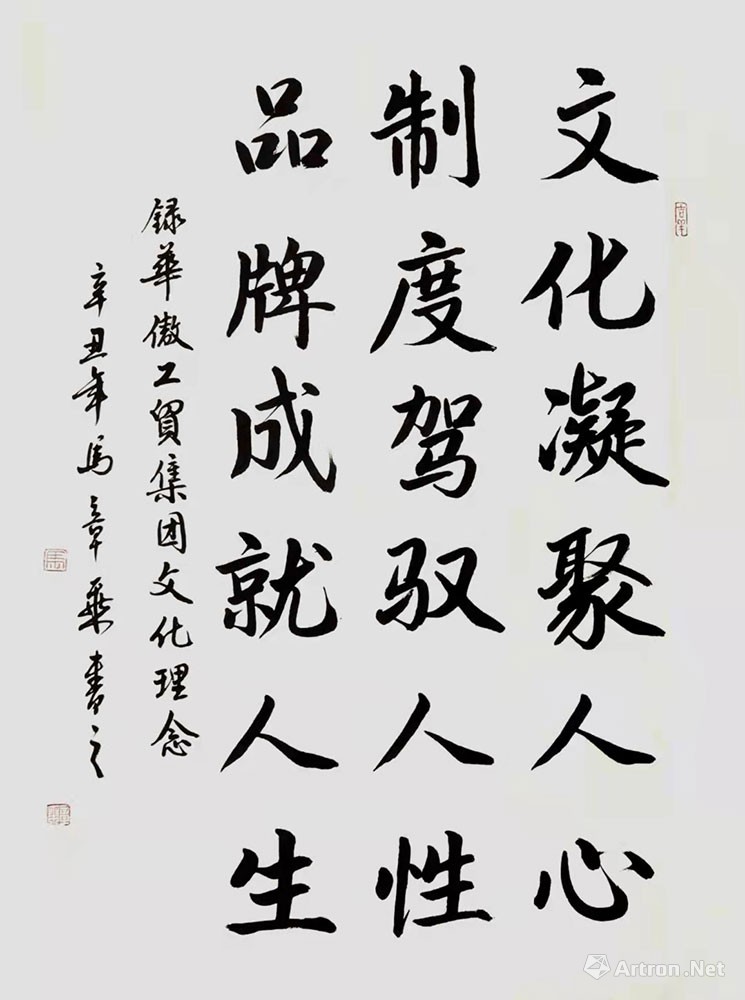 文化凝聚人心
制度驾驭人性
品牌成就人生
録華傲工貿集团文化理念
辛丑年馬章乘書之
Artron.Net